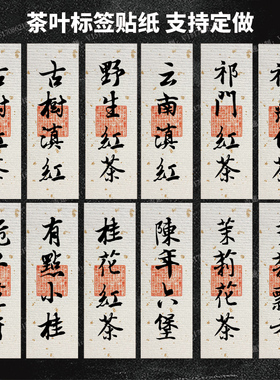 茶叶标签贴纸 支持定做
古樹滇紅
古樹滇紅
野生紅茶
云南滇紅
祁門紅茶
有點小桂
桂花紅茶
陳年六堡
茉莉花茶